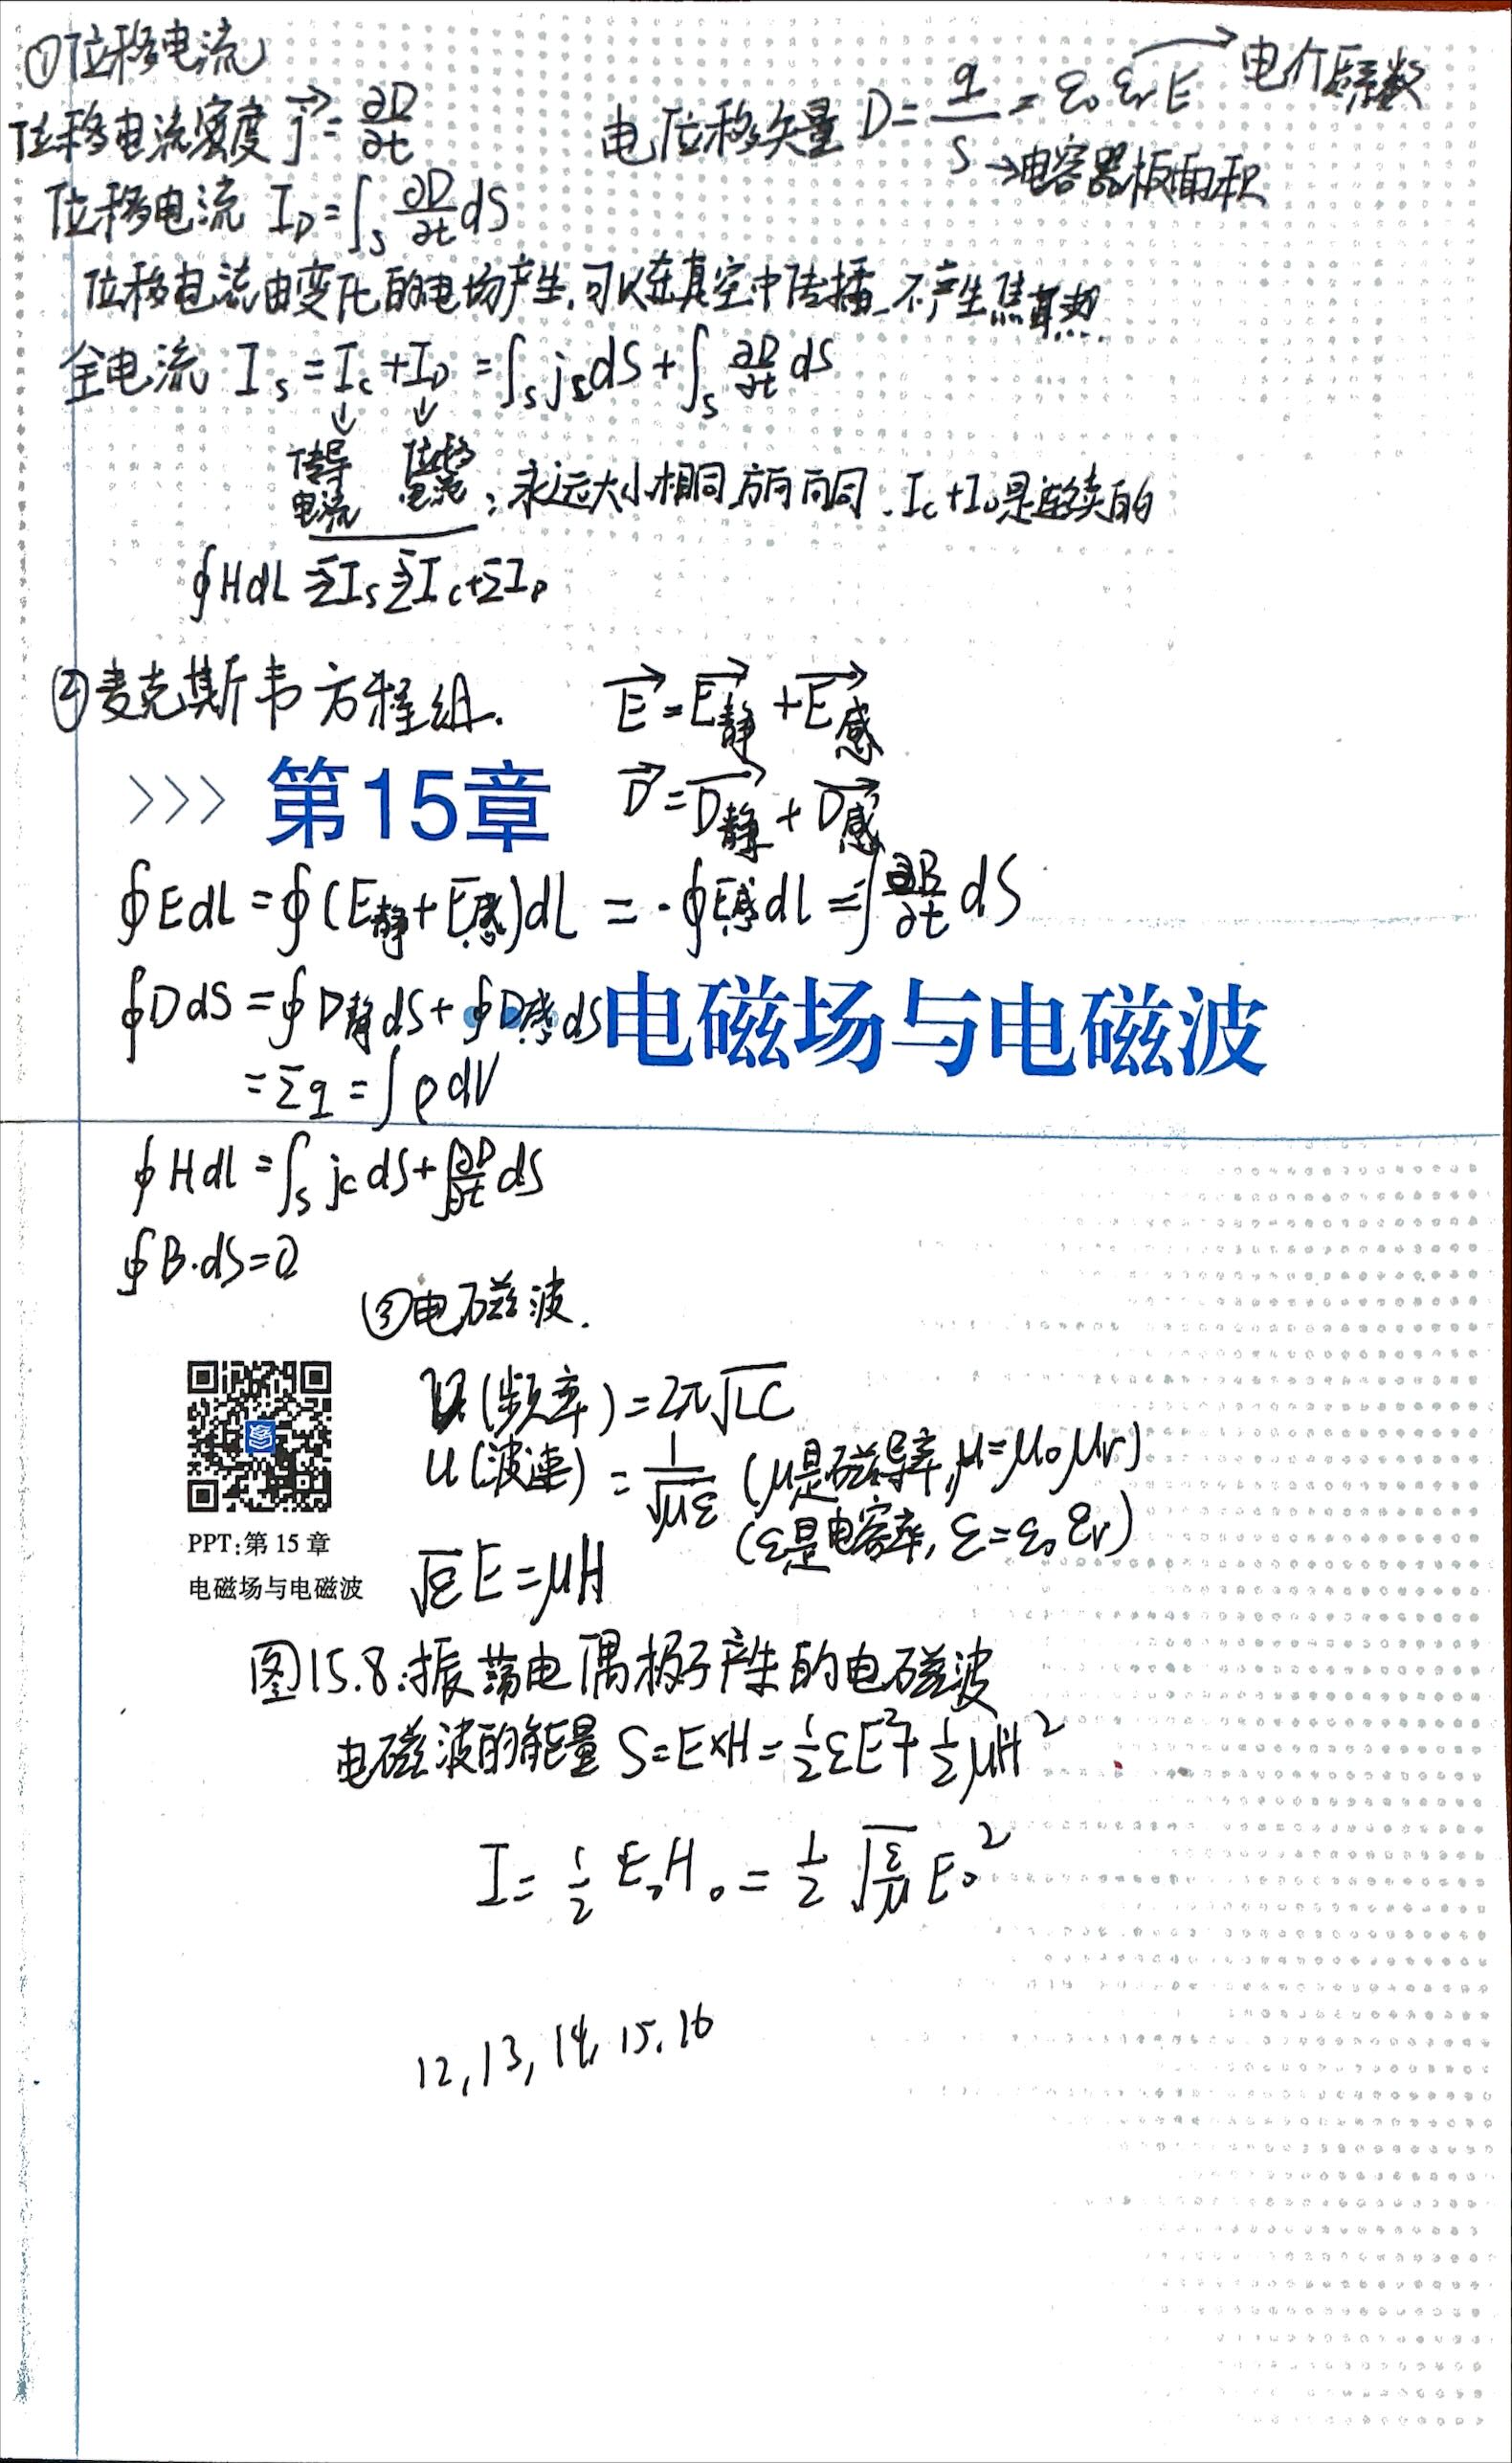 ①位移电流
位移电流密度 j⃗ = ∂D/∂t
电位移矢量 D = q/S = ε₀εᵣE → 电介系数
S → 电容器板面积
位移电流 I_D = ∫_S ∂D/∂t dS
位移电流由变化的电场产生,可以在真空中传播,不产生焦耳热.
全电流 I_s = I_c + I_D = ∫_S j_s dS + ∫_S ∂D/∂t dS
传导电流 位移电流 : 永远大小相同方向同. I_c+I_D是连续的
∮Hdl = ΣI_s = ΣI_c + ΣI_D
②麦克斯韦方程组.
E⃗ = E⃗静 + E⃗感
>>> 第15章
D⃗ = D⃗静 + D⃗感
∮Edl = ∮(E静+E感)dl = -∮E感dl = ∫ ∂B/∂t dS
∮DdS = ∮D静dS + ∮D感dS
电磁场与电磁波
= Σq = ∫ρdV
∮Hdl = ∫_S j_c dS + ∫ ∂D/∂t dS
∮B·dS = 0
③电磁波.
(频率) = 2π√LC
u(波速) = 1/√με (μ是磁导率,μ=μ₀μᵣ)
(ε是电容率, ε=ε₀εᵣ)
PPT:第 15 章
电磁场与电磁波
√ε E = μH
图15.8:振荡电偶极子产生的电磁波
电磁波的能量 S = E×H = ½εE² + ½μH²
I = ½E₀H₀ = ½√(ε/μ) E₀²
12,13,14,15,16